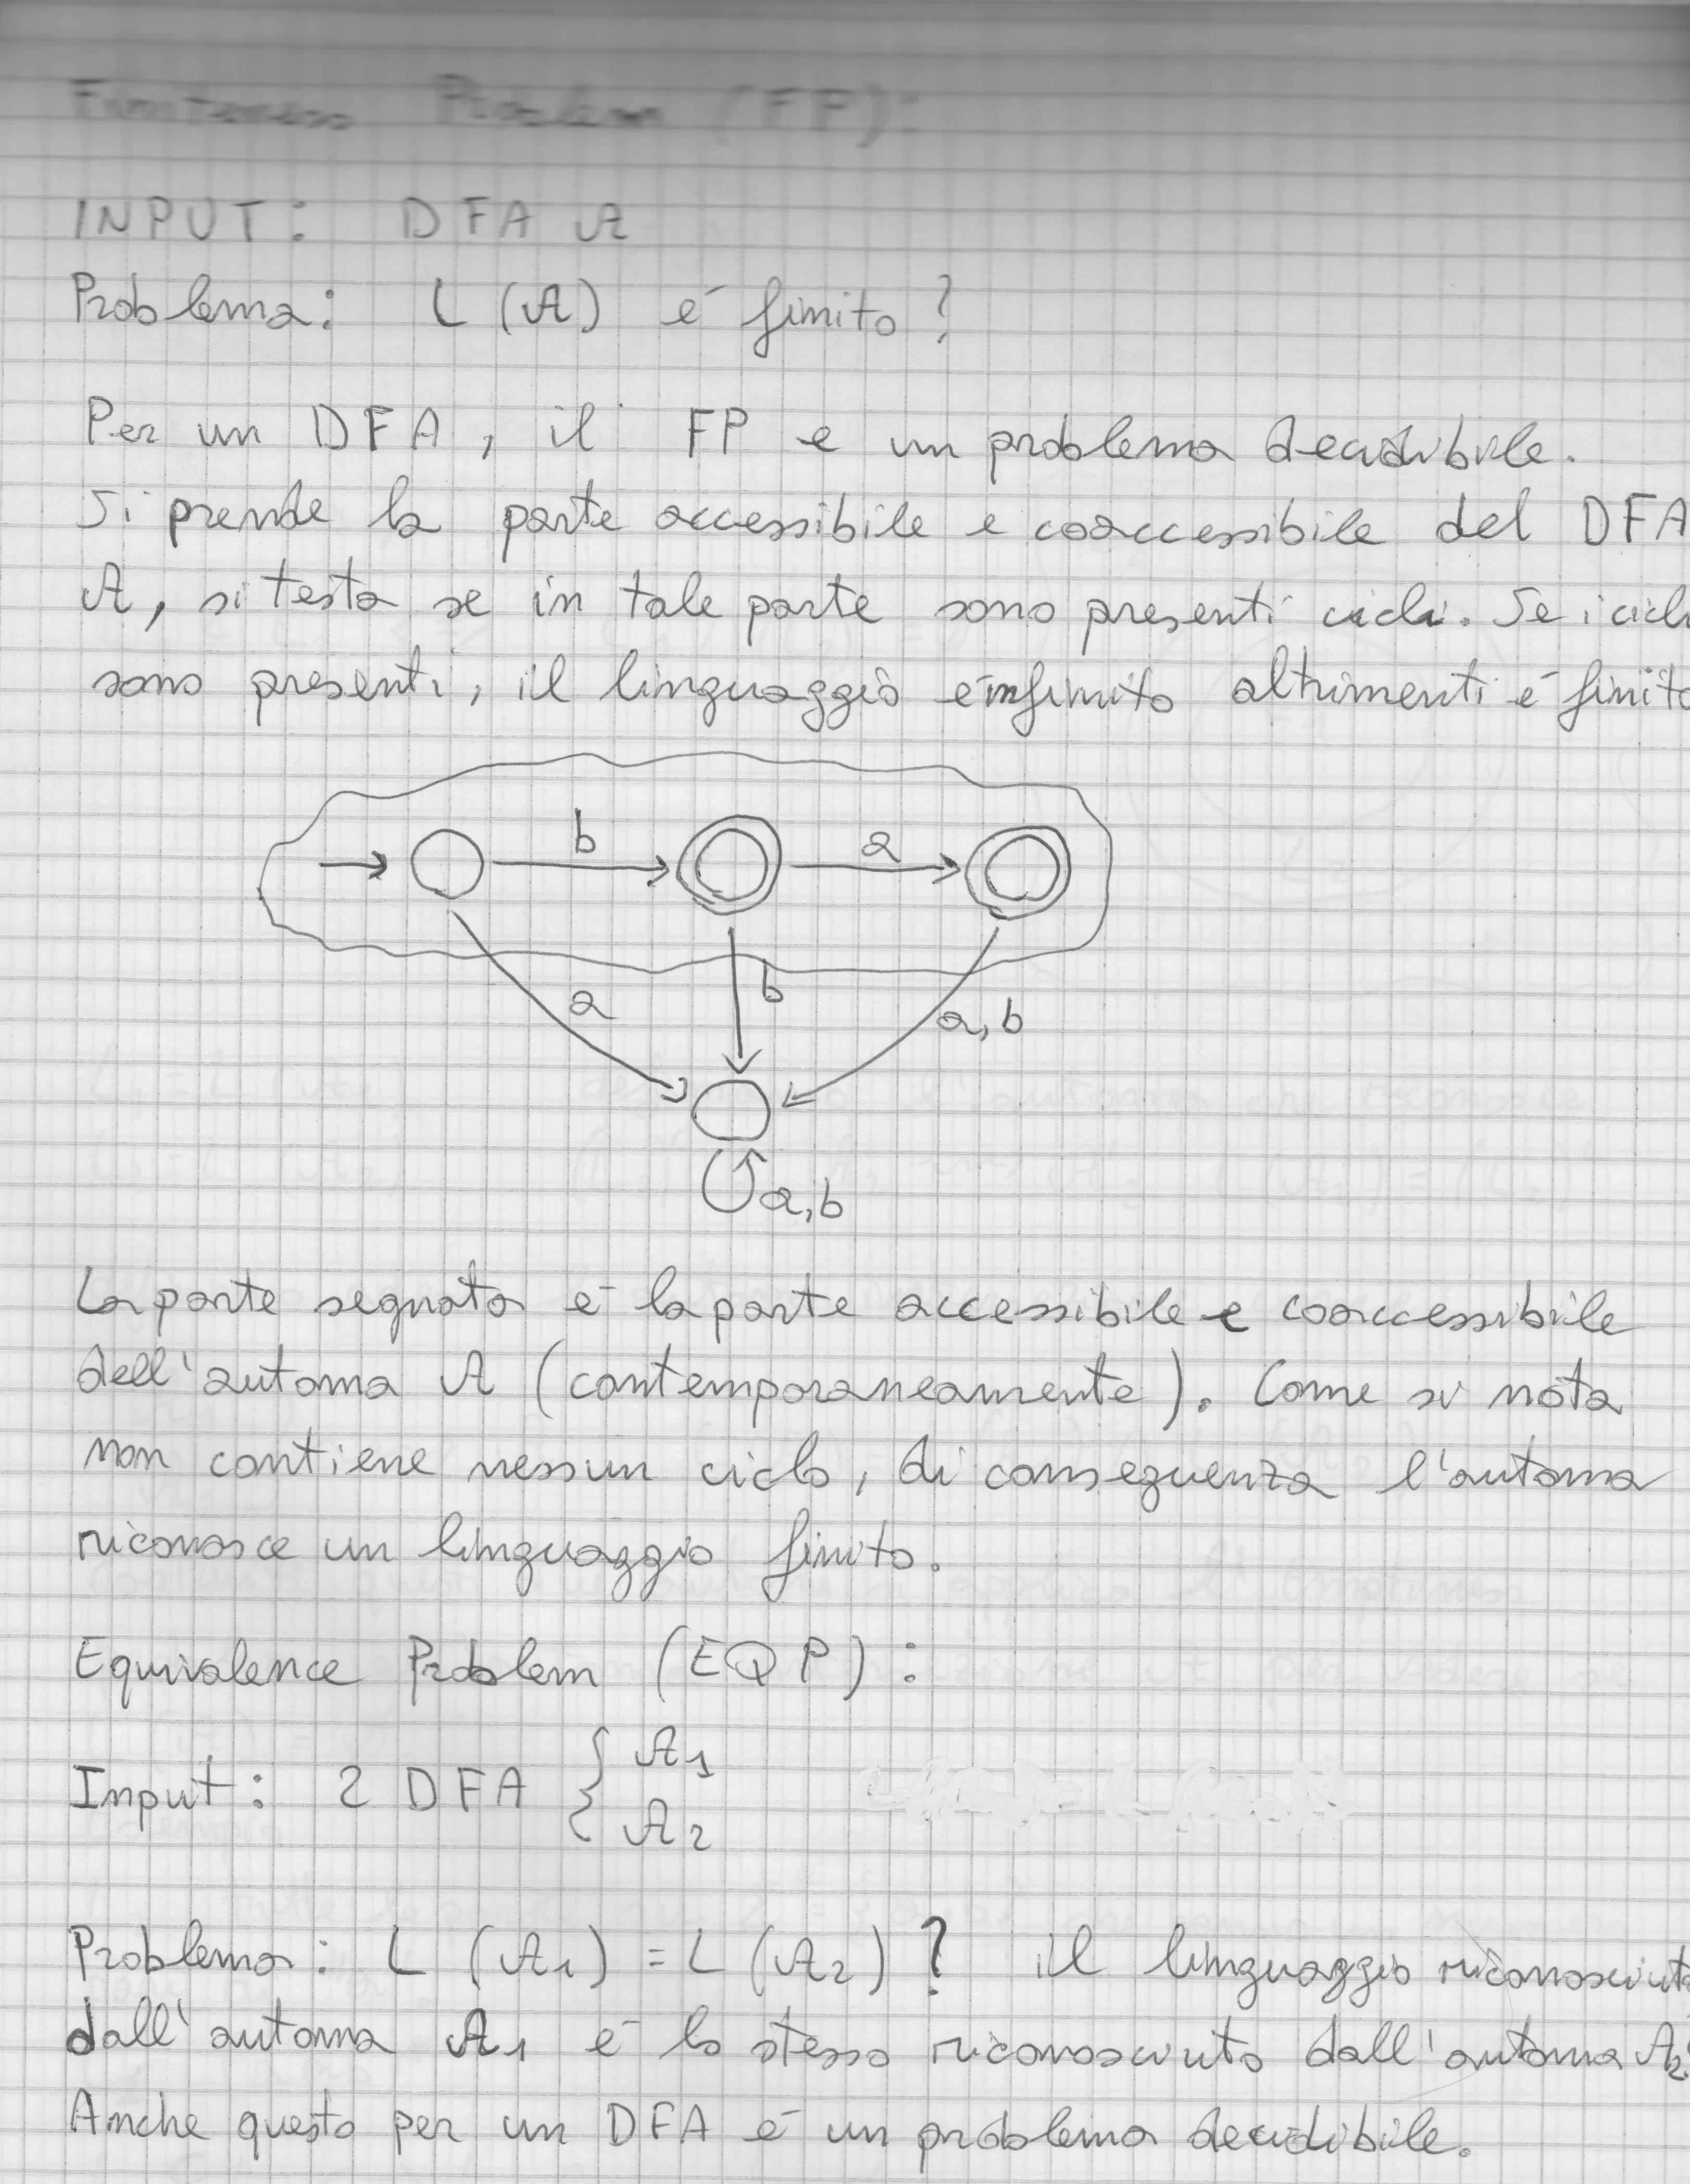 Finiteness Problem (FP):
INPUT: DFA A
Problema: L (A) é finito?
Per un DFA, il FP e un problema decidibile.
Si prende la parte accessibile e coaccessibile del DFA
A, si testa se in tale parte sono presenti cicli. Se i cicli
sono presenti, il linguaggio é infinito altrimenti é finito
b
a
a
b
a,b
a,b
La parte segnata é la parte accessibile e coaccessibile
dell'automa A (contemporaneamente). Come si nota
non contiene nessun ciclo, di conseguenza l'automa
riconosce un linguaggio finito.
Equivalence Problem (EQP):
Input: 2 DFA { A1
A2
Problema: L (A1) = L (A2) ? il linguaggio riconosciuto
dall'automa A1 é lo stesso riconosciuto dall'automa A2?
Anche questo per un DFA é un problema decidibile.